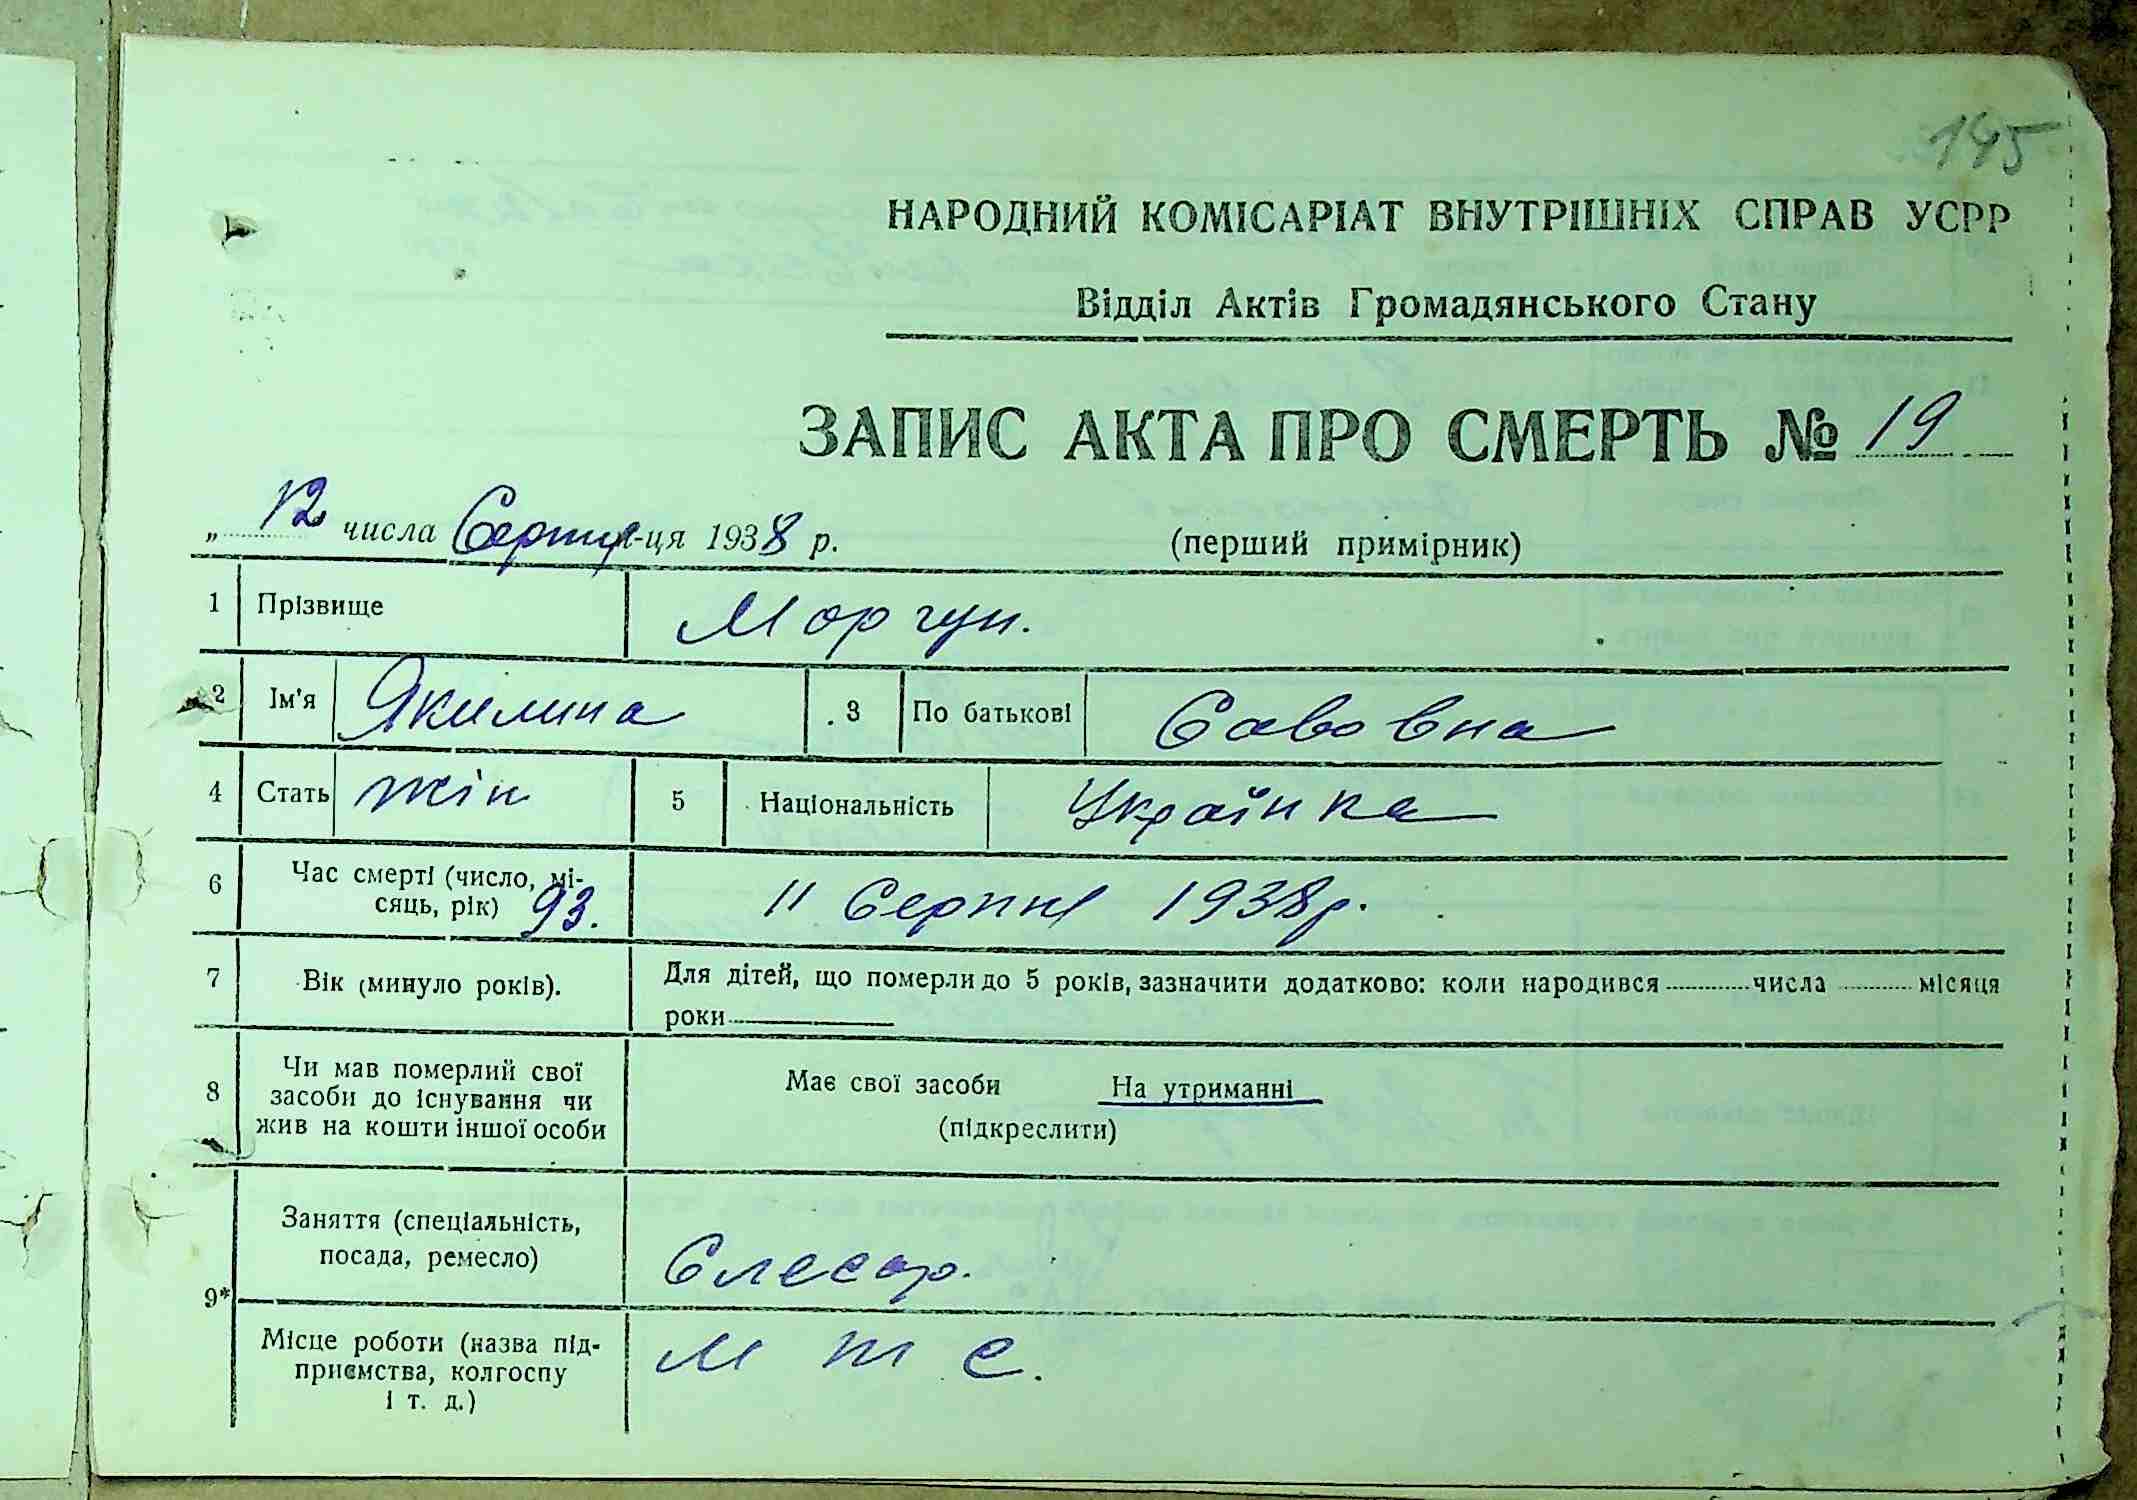 145
НАРОДНИЙ КОМІСАРІАТ ВНУТРІШНІХ СПРАВ УСРР
Відділ Актів Громадянського Стану
ЗАПИС АКТА ПРО СМЕРТЬ № 19
„ 12 числа Серпня-ця 1938 р.
(перший примірник)
1 Прізвище Моргун.
2 Ім'я Якилина 3 По батькові Савовна
4 Стать жін 5 Національність Українка
6 Час смерті (число, мі-
сяць, рік) 93. 11 Серпня 1938р.
7 Вік (минуло років). Для дітей, що померли до 5 років, зазначити додатково: коли народився числа місяця
роки
8 Чи мав померлий свої
засоби до існування чи
жив на кошти іншої особи
Має свої засоби На утриманні
(підкреслити)
9* Заняття (спеціальність,
посада, ремесло) Слесар.
Місце роботи (назва під-
приємства, колгоспу
і т. д.) М т с.